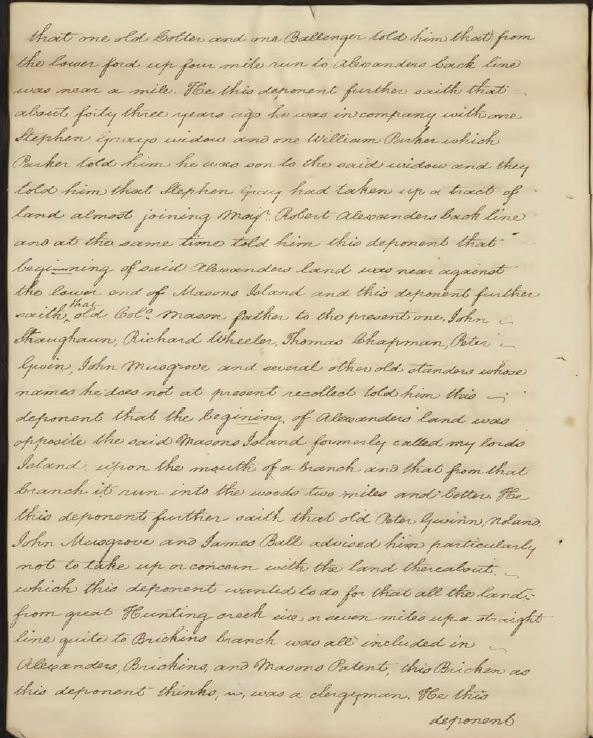 that one old Colter and one Ballenger told him that from
the lower ford up four mile run to Alexanders back line
was near a mile. He this deponent further saith that
about forty three years ago he was in company with one
Stephen Grays widow and one William Parker which
Parker told him he was son to the said widow and they
told him that Stephen Gray had taken up a tract of
land almost joining Majr. Robert Alexanders back line
and at the same time told him this deponent that
begining of said Alexanders land was near against
the lower end of Masons Island and this deponent further
saith, that old Colo. Mason father to the present one, John
Straughaun, Richard Wheeler, Thomas Chapman, Peter
Gwin, John Musgrove and several other old standers whose
names he does not at present recollect told him this
deponent that the begining of Alexanders land was
opposite the said Masons Island formerly called my lords
Island, upon the mouth of a branch and that from that
branch it run into the woods two miles and better. He
this deponent further saith that old Peter Gwinn, Noland,
John Musgrove and James Ball advised him particularly
not to take up or concern with the land thereabout
which this deponent wanted to do for that all the land
from great Hunting creek six or seven miles up a straight
line quite to Brickins branch was all included in
Alexanders, Brickins, and Masons Patent, this Bricken as
this deponent thinks, was a clergyman. He this
deponent